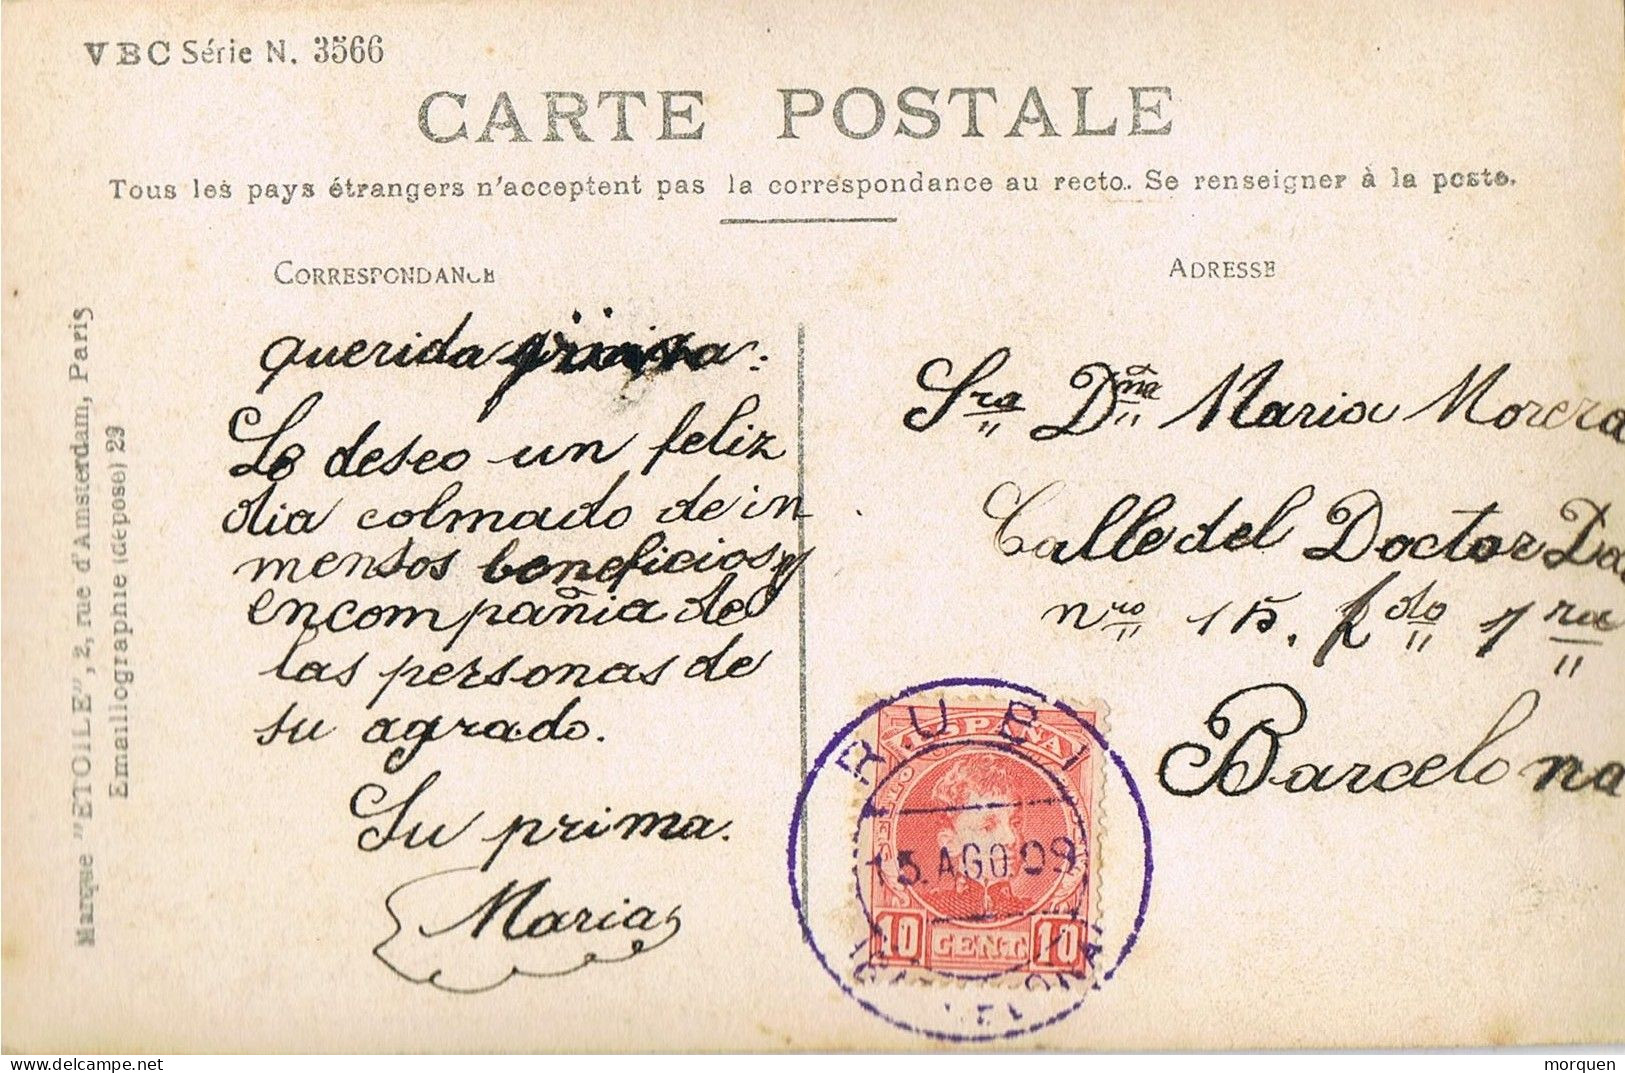 VBC Série N. 3566
CARTE POSTALE
Tous les pays étrangers n'acceptent pas la correspondance au recto. Se renseigner à la poste.
CORRESPONDANCE
querida prima:
Le deseo un feliz
dia colmado de in
mensos beneficios y
en compañia de
las personas de
su agrado.
Su prima.
Maria
ADRESSE
Sra Dña Maria Morera
Calle del Doctor
nro 15. 2do 1ra
Barcelona
RUBI
ESPAÑA
15.AGO.09
10 CENT. 10
Marque "ETOILE", 2, rue d'Amsterdam, Paris
Emaillographie (déposé) 29
morquen